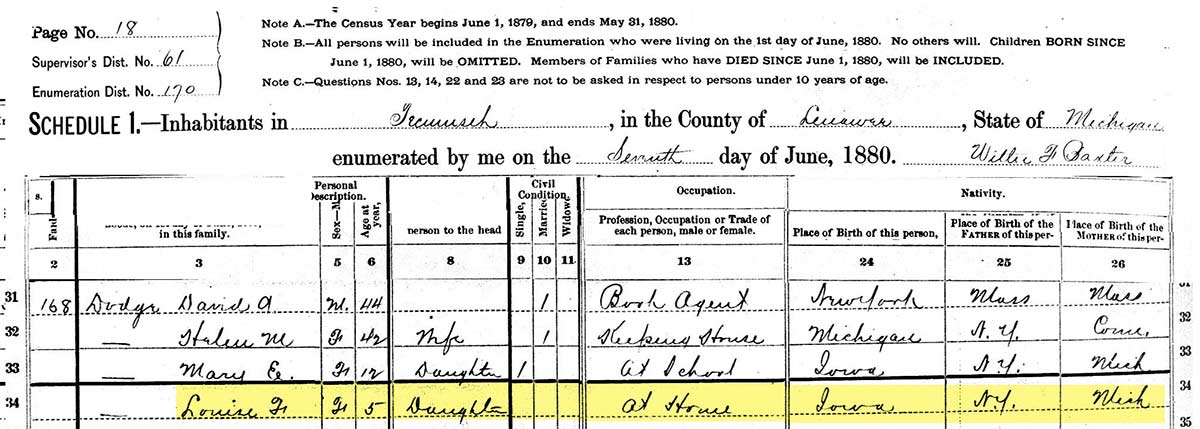 Page No. 18
Supervisor's Dist. No. 61
Enumeration Dist. No. 170
Note A.—The Census Year begins June 1, 1879, and ends May 31, 1880.
Note B.—All persons will be included in the Enumeration who were living on the 1st day of June, 1880. No others will. Children BORN SINCE
June 1, 1880, will be OMITTED. Members of Families who have DIED SINCE June 1, 1880, will be INCLUDED.
Note C.—Questions Nos. 13, 14, 22 and 23 are not to be asked in respect to persons under 10 years of age.
SCHEDULE 1.—Inhabitants in Tecumseh, in the County of Lenawee, State of Michigan
enumerated by me on the Seventh day of June, 1880. Willie F Baxter
Personal Description. Civil Condition. Occupation. Nativity.
s. in this family. Sex—M Age at year, person to the head Single, Married Widowe Profession, Occupation or Trade of each person, male or female. Place of Birth of this person, Place of Birth of the FATHER of this per- Place of Birth of the MOTHER of this per-
2 3 5 6 8 9 10 11 13 24 25 26
31 168 Dodge David A M. 44 1 Book Agent New York Mass Mass
32 — Helen M F 42 Wife 1 Keeping House Michigan N.Y. Conn. 32
33 — Mary E. F 12 Daughter 1 At School Iowa N.Y. Mich 33
34 — Louise F F 5 Daughter At House Iowa N.Y. Mich 34
35